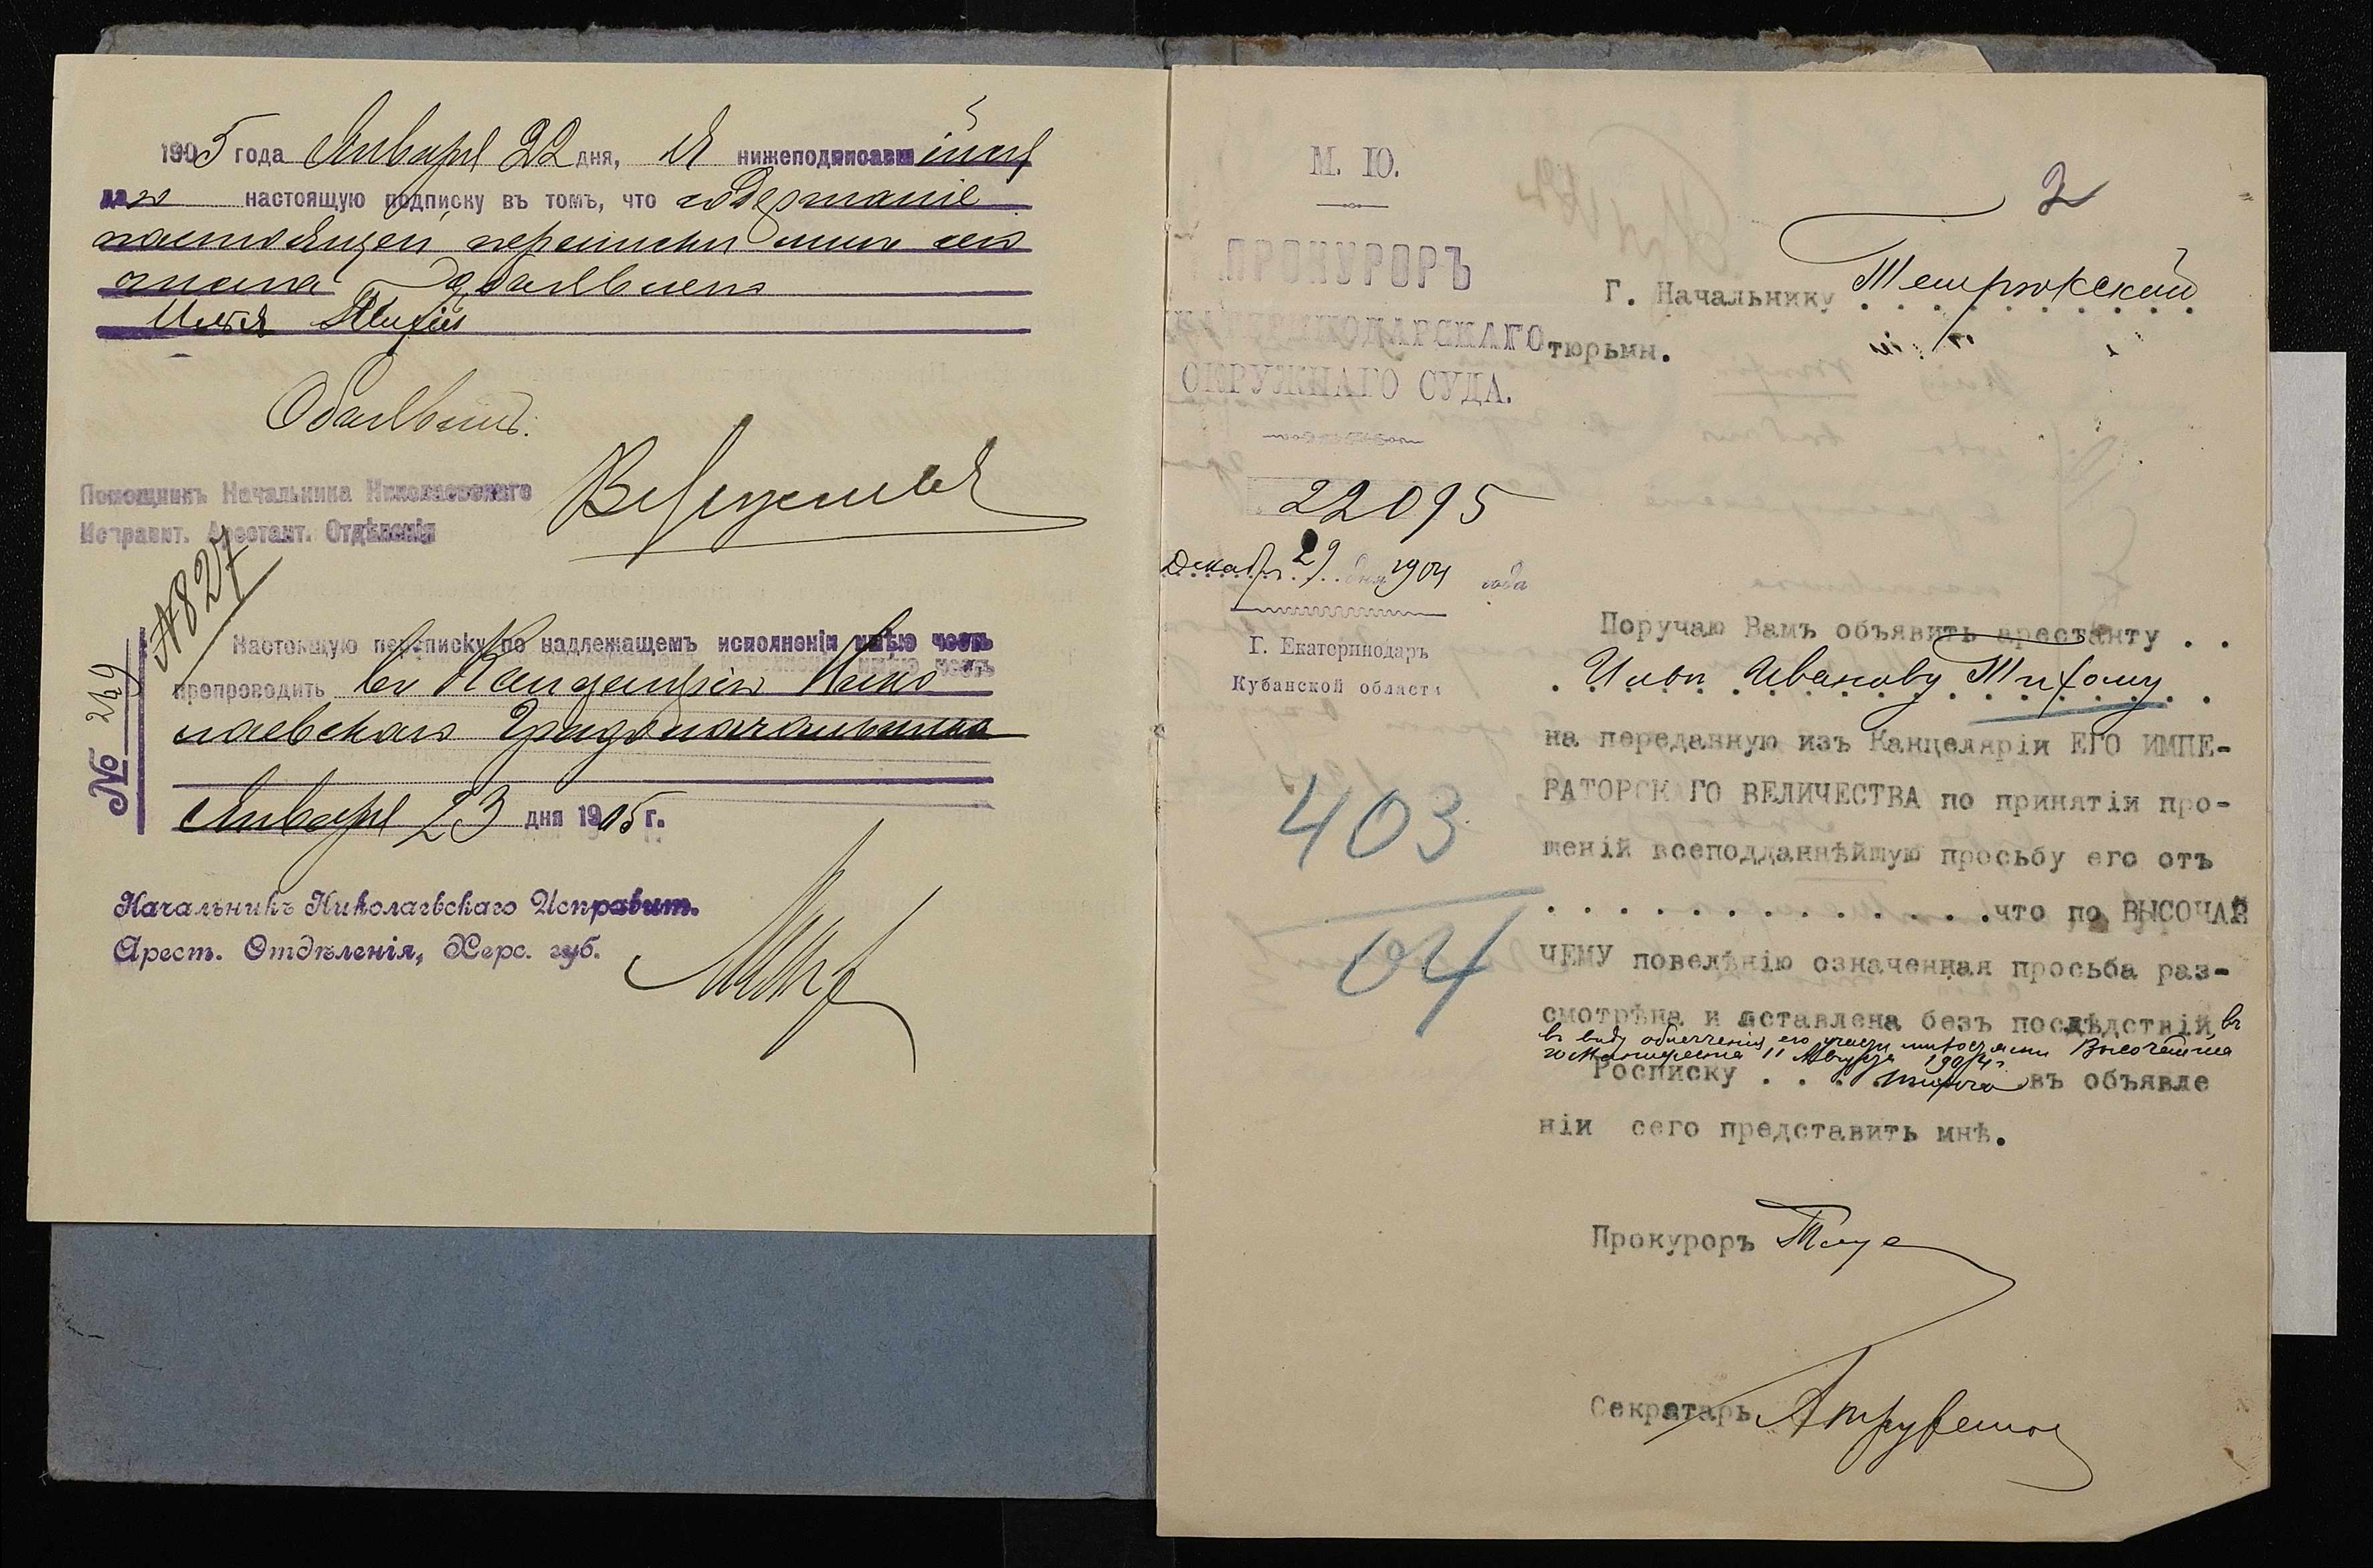 1905 года Января 22 дня, я нижеподписавшійся
далъ настоящую подписку въ томъ, что содержаніе
настоящей переписки мнѣ сего
числа объявлено
Илья Тихій
Объявилъ:
Помощникъ Начальника Николаевскаго
Исправит. Арестант. Отдѣленія
№ 827
№ 249
Настоящую переписку по надлежащемъ исполненіи имѣю честь
препроводить въ Канцелярію Нико
лаевскаго Градоначальника
Января 23 дня 1905 г.
Начальникъ Николаевскаго Исправит.
Арест. Отдѣленія, Херс. губ.
2
М. Ю.
ПРОКУРОРЪ
ЕКАТЕРИНОДАРСКАГО
ОКРУЖНАГО СУДА.
22095
Декабря 29 дня 1904 года
Г. Екатеринодаръ
Кубанской области
403
04
Г. Начальнику Темрюкской
тюрьмы.
Поручаю Вамъ объявить арестанту . .
. Ильѣ Иванову Тихому . .
на переданную изъ Канцеляріи ЕГО ИМПЕ-
РАТОРСКАГО ВЕЛИЧЕСТВА по принятіи про-
шеній всеподданнѣйшую просьбу его отъ
. . . . . . . . . . . . . . что по ВЫСОЧАЙ
ЧЕМУ повелѣнію означенная просьба раз-
смотрѣна и оставлена безъ послѣдствій, въ
въ виду облегченія его участи милостями Высочайша
го Манифеста 11 Августа 1904 г.
Росписку . . . Тихого въ объявле
ніи сего представить мнѣ.
Прокуроръ
Секратарь